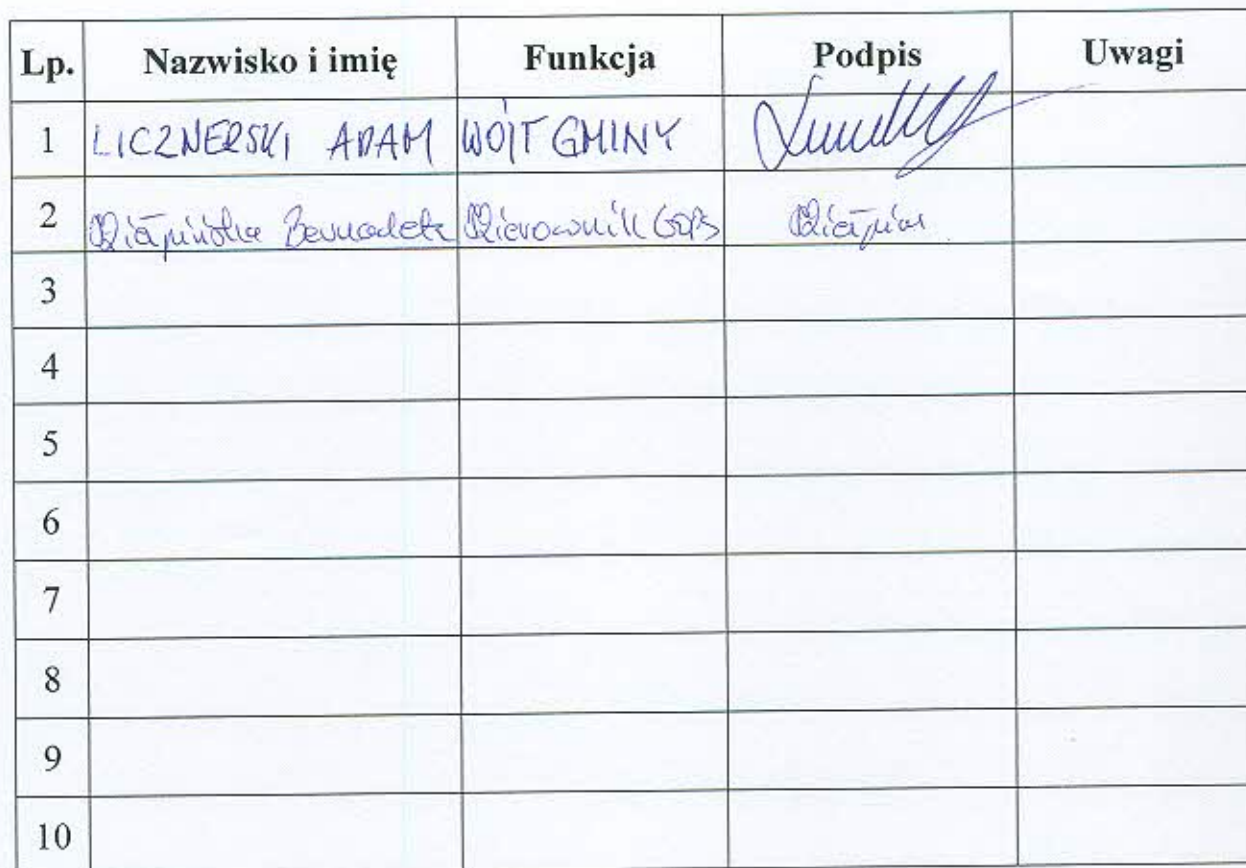 Lp. Nazwisko i imię Funkcja Podpis Uwagi
1 LICZNERSKI ADAM WÓJT GMINY
2 Bernadeta Kierownik GOPS
3
4
5
6
7
8
9
10